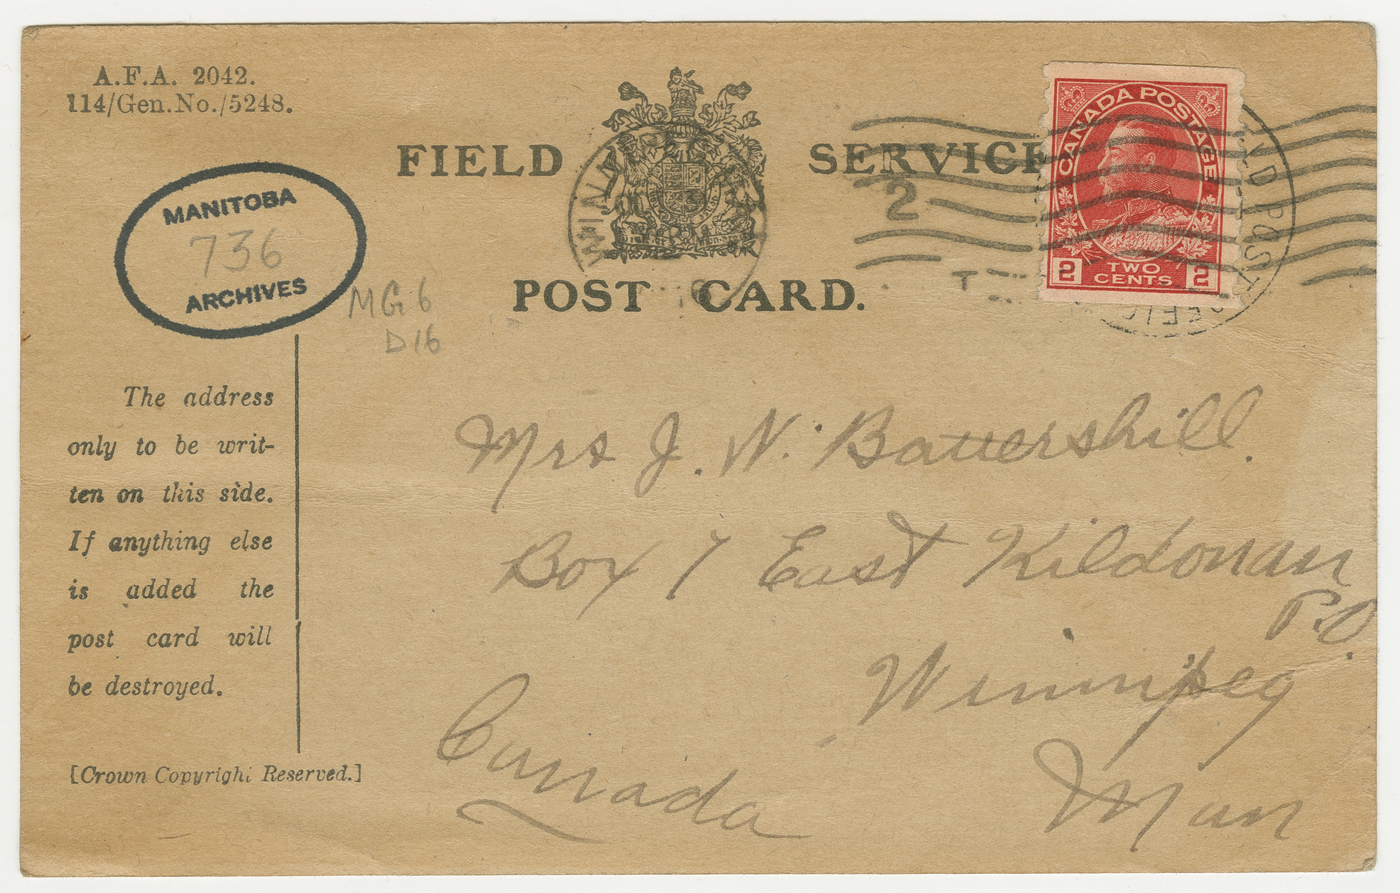 A.F.A. 2042.
114/Gen.No./5248.
FIELD SERVICE
POST CARD.
CANADA POSTAGE
2 TWO CENTS 2
2
MANITOBA
736
ARCHIVES
MG6
D16
The address
only to be writ-
ten on this side.
If anything else
is added the
post card will
be destroyed.
[Crown Copyright Reserved.]
Mrs J. N. Battershill.
Box 7 East Kildonan
P.O.
Winnipeg
Man
Canada